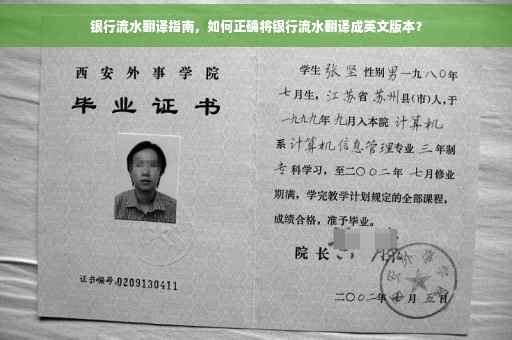 银行流水翻译指南，如何正确将银行流水翻译成英文版本？
西安外事学院
毕业证书
证书编号:0209130411
学生 张坚 性别 男 一九八〇年
七月生，江苏省 苏州县(市)人,于
一九九九年 九月入本院 计算机
系 计算机信息管理专业 三 年制
专 科学习，至二〇〇二年 七月修业
期满，学完教学计划规定的全部课程，
成绩合格，准予毕业。
院 长
二〇〇二年 月 五 日